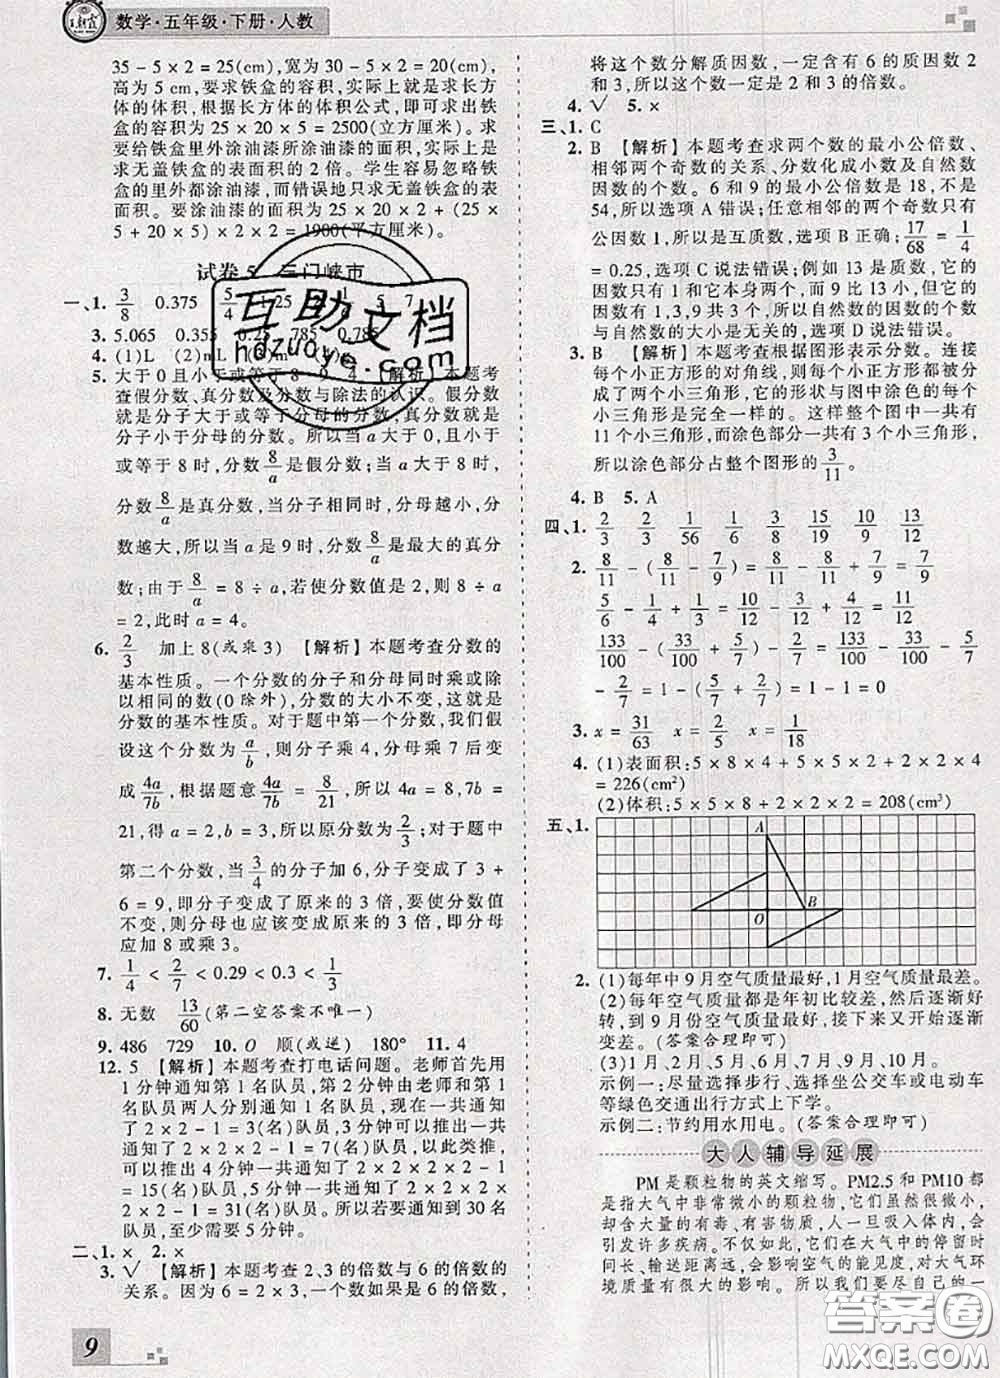 数学·五年级·下册·人教
35-5×2=25(cm),宽为30-5×2=20(cm),
高为5 cm,要求铁盒的容积,实际上就是求长方
体的体积,根据长方体的体积公式,即可求出铁
盒的容积为25×20×5=2500(立方厘米)。求
要给铁盒里外涂油漆所涂油漆的面积,实际上就是
求无盖铁盒的表面积的2倍。学生容易忽略铁
盒的里外都涂油漆,而错误地只求无盖铁盒的表
面积。要涂油漆的面积为[25×20+(25
×5+20×5)×2]×2=1900(平方厘米)。
试卷5 三门峡市
一、1. 3/8 0.375 5/4 1.25
3. 5.065 355 0.25 785 0.785
4. (1)L (2)mL
5. 大于0且小于或等于8 9 4 [解析]本题考
查假分数、真分数及分数与除法的认识。假分数
就是分子大于或等于分母的分数,真分数就是
分子小于分母的分数。所以当a大于0,且小于
或等于8时,分数8/a是假分数;当a大于8时,
分数8/a是真分数,当分子相同时,分母越小,分
数越大,所以当a是9时,分数8/a是最大的真分
数;由于8/a=8÷a,若使分数值是2,则8÷a
=2,此时a=4。
6. 2/3 加上8(或乘3) [解析]本题考查分数的
基本性质。一个分数的分子和分母同时乘或除
以相同的数(0除外),分数的大小不变,这就是
分数的基本性质。对于题中第一个分数,我们假
设这个分数为a/b,则分子乘4,分母乘7后变
成4a/7b,根据题意4a/7b=8/21,所以4a=8,7b=
21,得a=2,b=3,所以原分数为2/3;对于题中
第二个分数,当3/4的分子加6,分子变成了3+
6=9,即分子变成了原来的3倍,要使分数值
不变,则分母也应该变成原来的3倍,即分母
应加8或乘3。
7. 1/4<2/7<0.29<0.3<1/3
8. 无数 13/60(第二空答案不唯一)
9. 486 729 10. O 顺(或逆) 180° 11. 4
12. 5 [解析]本题考查打电话问题。老师首先用
1分钟通知第1名队员,第2分钟由老师和第1
名队员两人分别通知1名队员,现在一共通知了
2×2-1=3(名)队员,3分钟可以一共通知了
2×2×2-1=7(名)队员,以此类推,
可以得到,4分钟一共通知了2×2×2×2-1
=15(名)队员,5分钟一共通知了2×2×2×
2×2-1=31(名)队员。所以要通知30名
队员,至少需要5分钟。
二、1. × 2. ×
3. √ [解析]本题考查2、3的倍数与6的倍数的
关系。因为6=2×3,一个数如果是6的倍数,
将这个数分解质因数,一定含有6的质因数2
和3,所以这个数一定是2和3的倍数。
4. √ 5. ×
三、1. C
2. B [解析]本题考查求两个数的最小公倍数、
相邻两个奇数的关系、分数化成小数及自然数
因数的个数。6和9的最小公倍数是18,不是
54,所以选项A错误;任意相邻的两个奇数只有
公因数1,所以是互质数,选项B正确;17/68=1/4
=0.25,选项C说法错误;例如13的因数
只有1和它本身两个,而9比13小,但是9的因数
有1,3,9共3个,所以自然数的因数的个数
与自然数的大小是无关的,选项D说法错误。
3. B [解析]本题考查根据图形表示分数。连接
每个小正方形的对角线,则每个小正方形被分
成了两个小三角形,它的形状与图中涂色的每
个小三角形是完全一样的。这样整个图中一共有
11个小三角形,而涂色部分一共有3个小三角形,
所以涂色部分占整个图形的3/11。
4. B 5. A
四、1. 2/3 2/3 1/56 1/6 3/8 15/19 10/9 13/12
2. 8/11-(8/11-7/9)=8/11-8/11+7/9=7/9
5/6-1/4+1/3=10/12-3/12+4/12=11/12
133/100-(33/100+5/7)-2/7=133/100-33/100-5/7
-2/7=1-(5/7+2/7)=1-1=0
3. x=31/63 x=2/5 x=1/18
4. (1)表面积:5×8×4+5×5×2+2×2×4
=226(cm²)
(2)体积:5×5×8+2×2×2=208(cm³)
五、1.
A
O
B
2. (1)每年中9月空气质量最好,1月空气质量最差。
(2)每年空气质量都是年初比较差,然后逐渐好
转,到9月份空气质量最好,接下来又开始逐渐
变差。(答案合理即可)
(3)1月,2月
示例一:尽量选择步行、选择坐公交车或电动车
等绿色交通出行方式上下学。
示例二:节约用水用电。(答案合理即可)
大人辅导延展
PM是颗粒物的英文缩写。PM2.5和PM10都
是指大气中非常微小的颗粒物,它们虽然很微小,
却含大量的有毒、有害物质,人一旦吸入体内,会
引发许多疾病。不仅如此,它们在大气中的停留时
间长、输送距离远,会影响空气的能见度,对大气环
境质量有很大的影响。所以我们要尽自己的一
9
互助文档
hdzuoye.com
答案圈
MXQE.COM